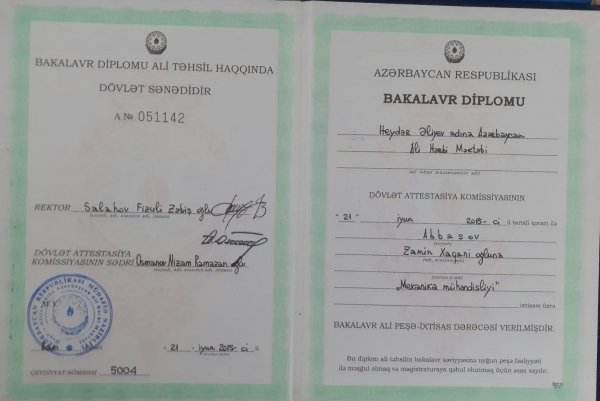 BAKALAVR DİPLOMU ALİ TƏHSİL HAQQINDA
DÖVLƏT SƏNƏDİDİR
A № 051142
REKTOR Salahov Fizuli Zəbiş oğlu
(soyadı, adı, atasının adı, imzası)
DÖVLƏT ATTESTASİYA
KOMİSSİYASININ SƏDRİ Osmanov Nizam Ramazan oğlu
(soyadı, adı, atasının adı, imzası)
M.Y.
Bakı "21" iyun 2015-ci il
QEYDİYYAT NÖMRƏSİ 5004
AZƏRBAYCAN RESPUBLİKASI
BAKALAVR DİPLOMU
Heydər Əliyev adına Azərbaycan
Ali Hərbi Məktəbi
(ali təhsil müəssisəsinin adı)
DÖVLƏT ATTESTASİYA KOMİSSİYASININ
"21" iyun 2015-ci il tarixli qərarı ilə
Abbasov
(soyadı)
Zamin Xaqani oğluna
(adı, atasının adı)
„Mexanika mühəndisliyi"
(ixtisasın adı)
ixtisası üzrə
BAKALAVR ALİ PEŞƏ-İXTİSAS DƏRƏCƏSİ VERİLMİŞDİR.
Bu diplom ali təhsilin bakalavr səviyyəsinə uyğun peşə fəaliyyəti
ilə məşğul olmaq və magistraturaya qəbul olunmaq üçün əsas sayılır.